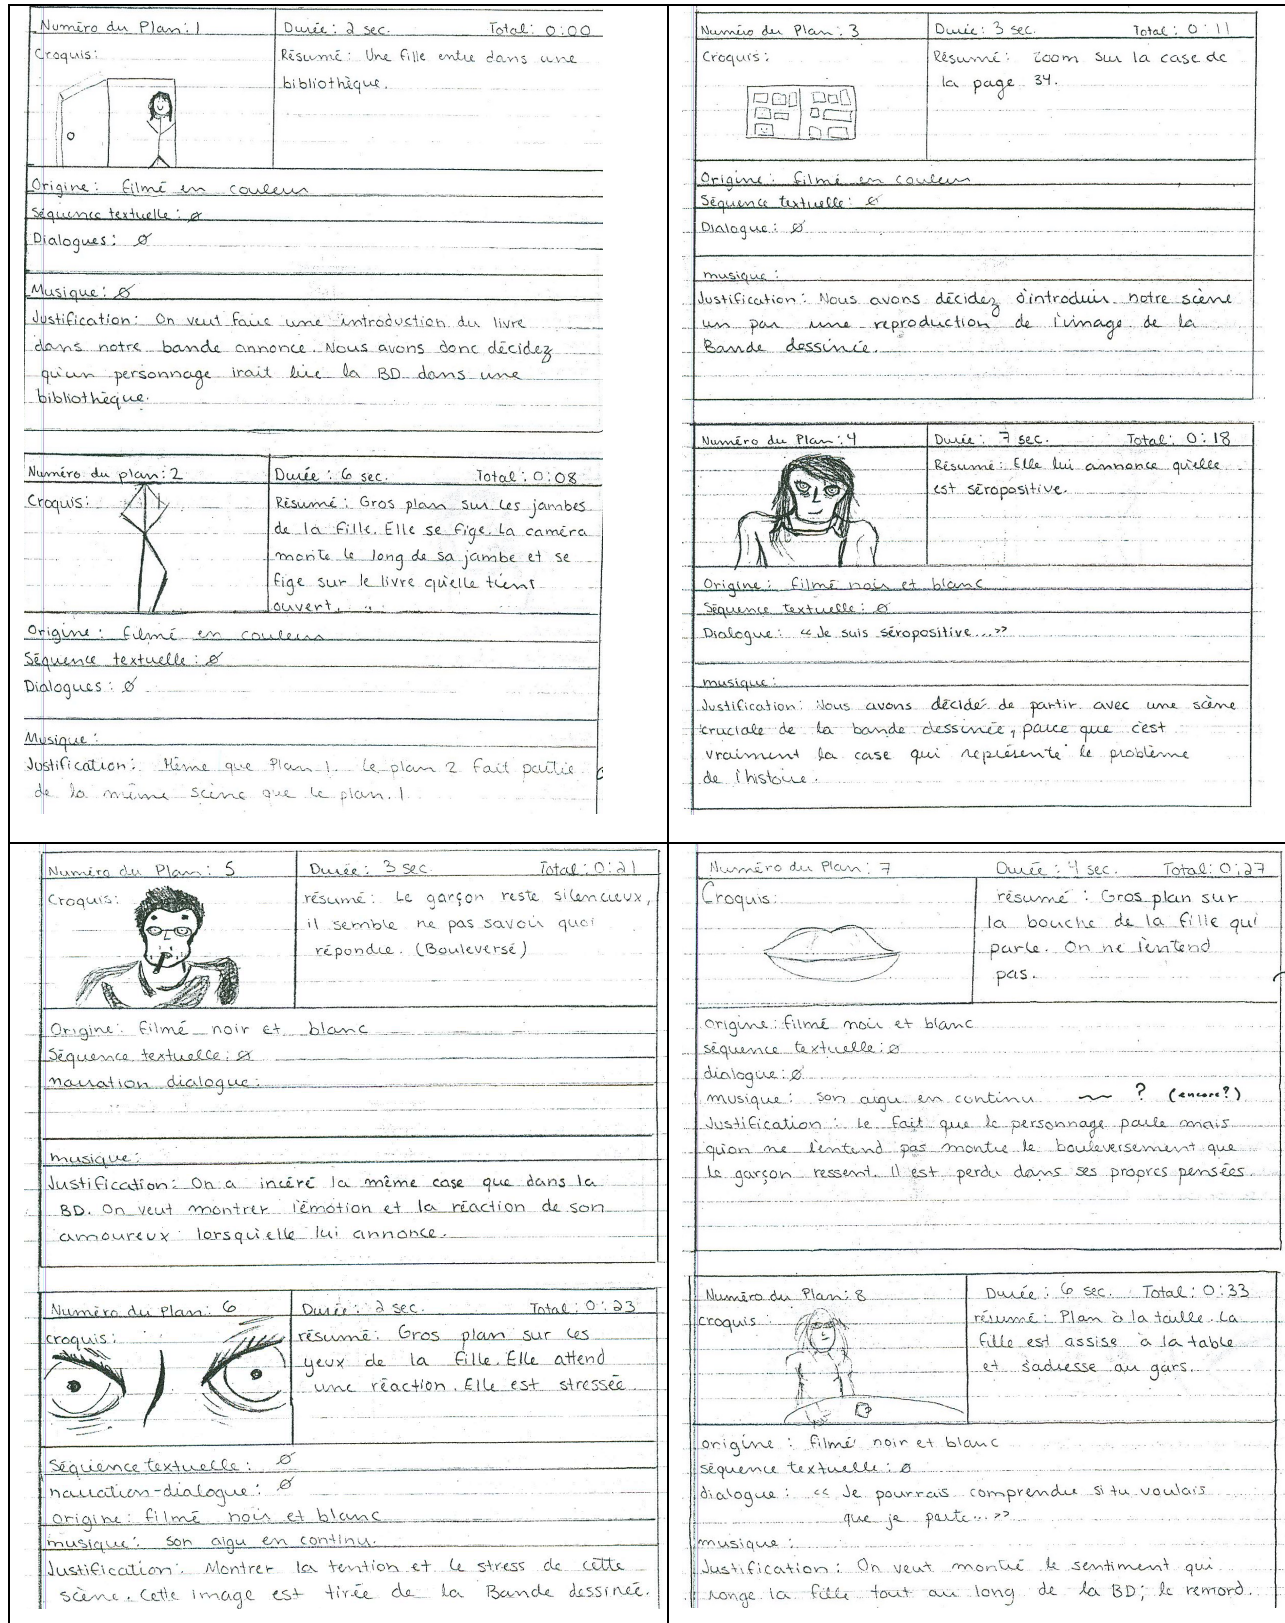 Numéro du Plan: 1 Durée: 2 sec. Total: 0:00
Croquis: Résumé: Une fille entre dans une
bibliothèque.
Origine: filmé en couleur
Séquence textuelle: ø
Dialogues: ø
Musique: ø
Justification: On veut faire une introduction du livre
dans notre bande annonce. Nous avons donc décidez
qu'un personnage irait lire la BD dans une
bibliothèque.
Numéro du plan: 2 Durée: 6 sec. Total: 0:08
Croquis: Résumé: Gros plan sur les jambes
de la fille. Elle se fige. La caméra
monte le long de sa jambe et se
fige sur le livre qu'elle tient
ouvert.
Origine: filmé en couleur
Séquence textuelle: ø
Dialogues: ø
Musique:
Justification: Même que Plan 1. Le plan 2 fait partie
de la même scène que le plan. 1
Numéro du Plan: 3 Durée: 3 sec. Total: 0:11
Croquis: Résumé: zoom sur la case de
la page 34.
Origine: filmé en couleur
Séquence textuelle: ø
Dialogue: ø
musique:
Justification: Nous avons décidez d'introduir notre scène
un par une reproduction de l'image de la
Bande dessinée.
Numéro du Plan: 4 Durée: 7 sec. Total: 0:18
Résumé: Elle lui annonce qu'elle
est séropositive.
Origine: filmé noir et blanc
Séquence textuelle: ø
Dialogue: «Je suis séropositive...»
musique:
Justification: Nous avons décidé de partir avec une scène
cruciale de la bande dessinée, parce que c'est
vraiment la case qui représente le problème
de l'histoire.
Numéro du Plan: 5 Durée: 3 sec. Total: 0:21
Croquis: résumé: Le garçon reste silencieux,
il semble ne pas savoir quoi
répondre. (Bouleversé)
Origine: filmé noir et blanc
Séquence textuelle: ø
narration dialogue:
musique:
Justification: On a incéré la même case que dans la
BD. On veut montrer l'émotion et la réaction de son
amoureux lorsqu'elle lui annonce.
Numéro du Plan: 6 Durée: 2 sec. Total: 0:23
croquis: résumé: Gros plan sur les
yeux de la fille. Elle attend
une réaction. Elle est stressée
Séquence textuelle: ø
narration-dialogue: ø
origine: filmé noir et blanc
musique: son aigu en continu.
Justification: Montrer la tention et le stress de cette
scène. Cette image est tirée de la Bande dessinée.
Numéro du Plan: 7 Durée: 4 sec. Total: 0:27
Croquis: résumé: Gros plan sur
la bouche de la fille qui
parle. On ne l'entend
pas.
origine: filmé noir et blanc
séquence textuelle: ø
dialogue: ø
musique: son aigu en continu ~ ? (encore?)
Justification: Le fait que le personnage parle mais
qu'on ne l'entend pas montre le bouleversement que
le garçon ressent. Il est perdu dans ses propres pensées.
Numéro du Plan: 8 Durée: 6 sec. Total: 0:33
croquis: résumé: Plan à la taille. La
fille est assise à la table
et s'adresse au gars.
origine: filmé noir et blanc
séquence textuelle: ø
dialogue: «Je pourrais comprendre si tu voulais
que je parte...»
musique:
Justification: On veut montré le sentiment qui
ronge la fille tout au long de la BD; le remord.